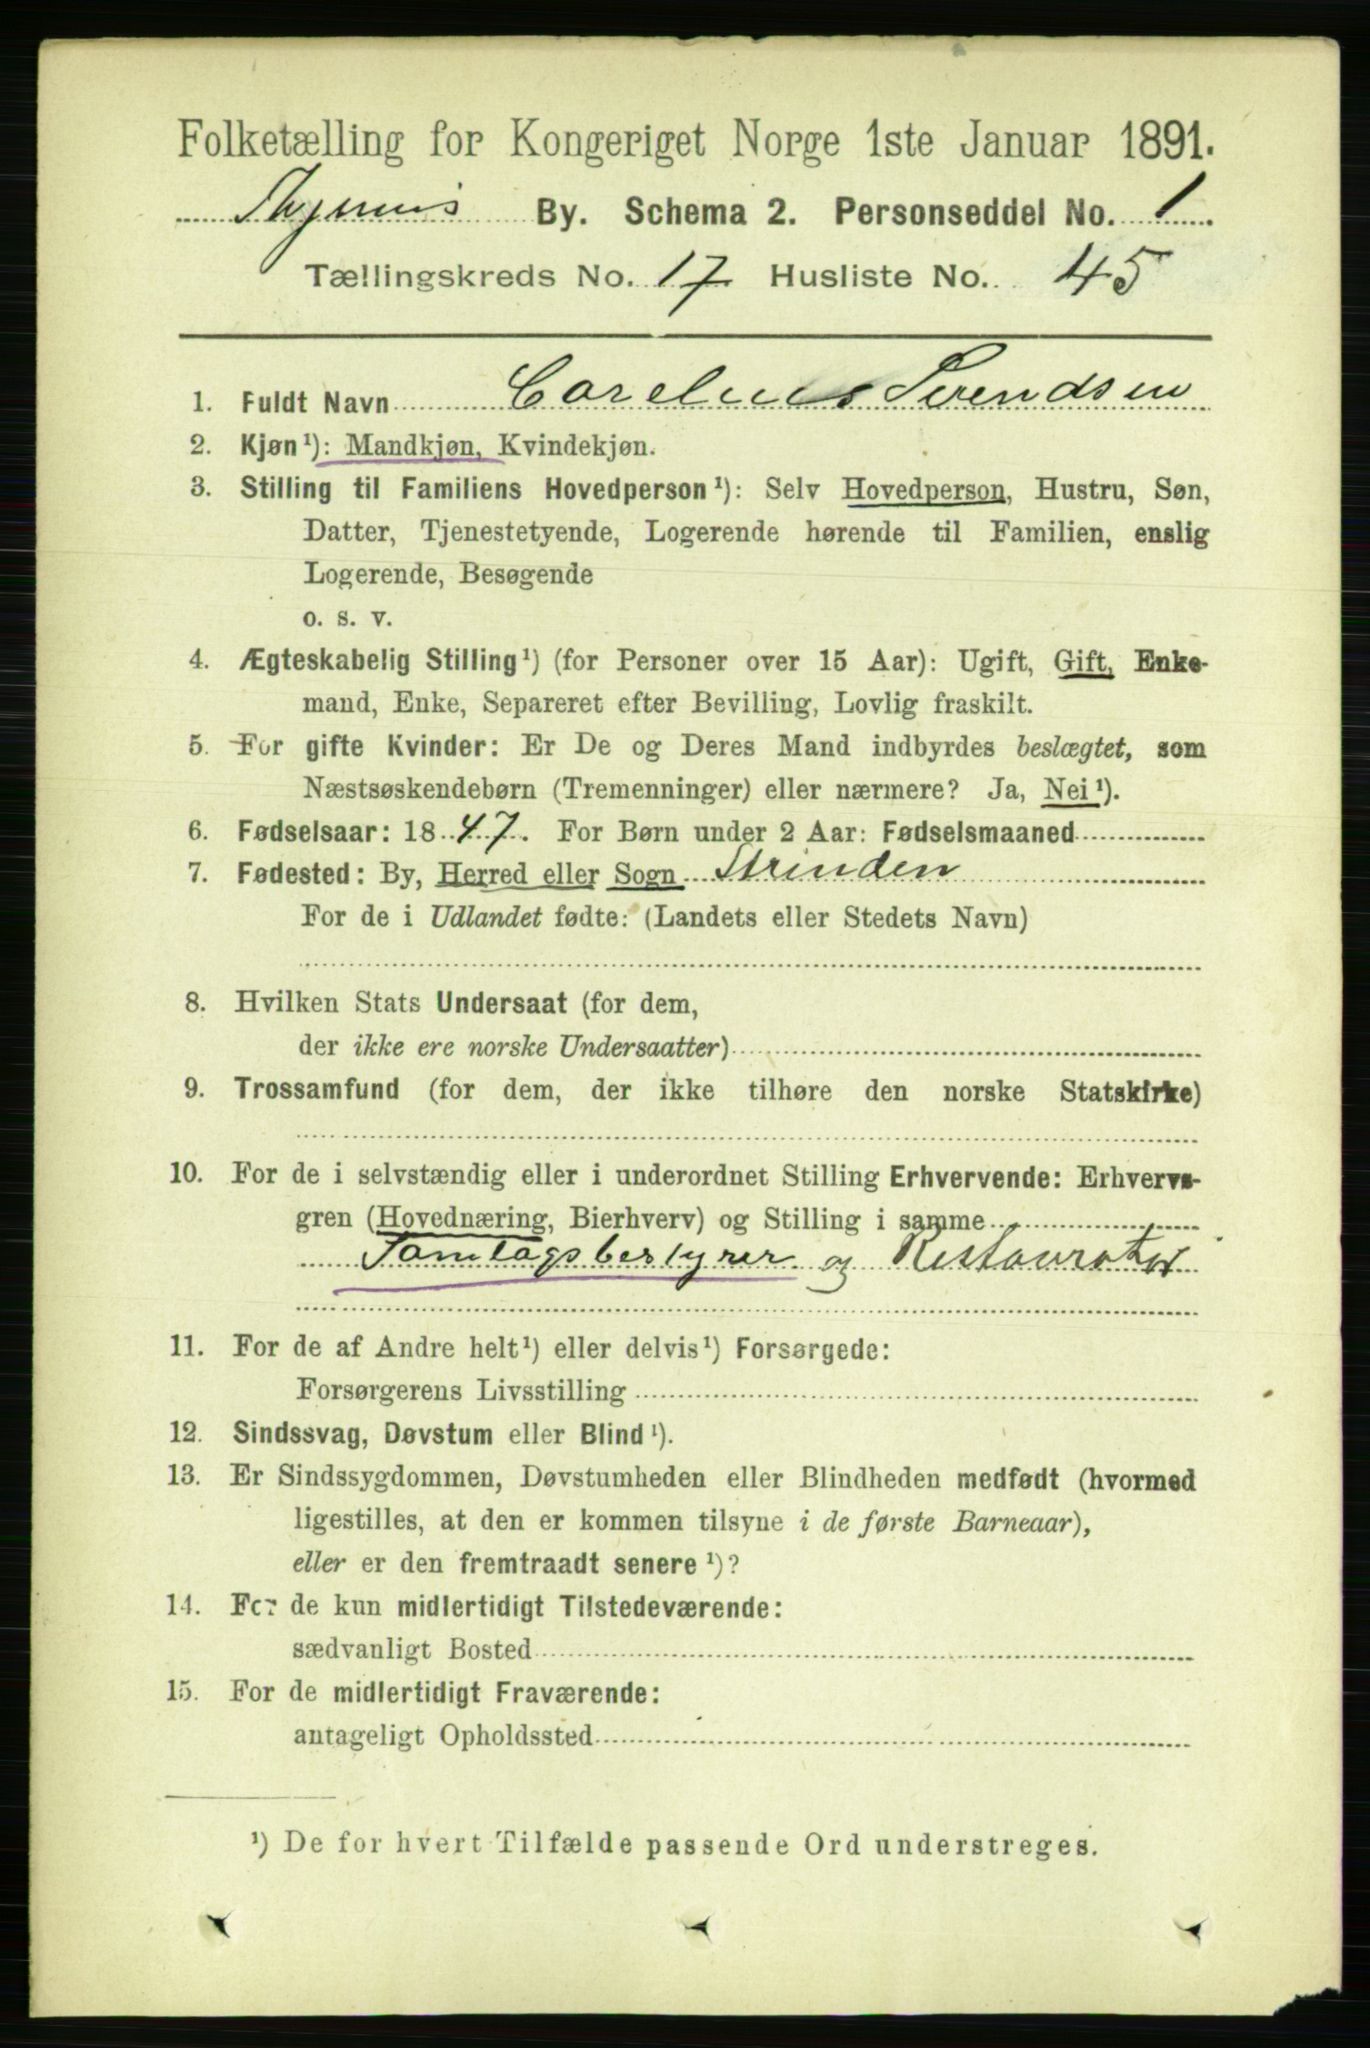 Folketælling for Kongeriget Norge 1ste Januar 1891.
Thjems By. Schema 2. Personseddel No. 1
Tællingskreds No. 17 Husliste No. 45
1. Fuldt Navn Carelius Svendsen
2. Kjøn¹): Mandkjøn, Kvindekjøn.
3. Stilling til Familiens Hovedperson¹): Selv Hovedperson, Hustru, Søn,
Datter, Tjenestetyende, Logerende hørende til Familien, enslig
Logerende, Besøgende
o. s. v.
4. Ægteskabelig Stilling¹) (for Personer over 15 Aar): Ugift, Gift, Enke-
mand, Enke, Separeret efter Bevilling, Lovlig fraskilt.
5. For gifte Kvinder: Er De og Deres Mand indbyrdes beslægtet, som
Næstsøskendebørn (Tremenninger) eller nærmere? Ja, Nei¹).
6. Fødselsaar: 1847. For Børn under 2 Aar: Fødselsmaaned
7. Fødested: By, Herred eller Sogn Strinden
For de i Udlandet fødte: (Landets eller Stedets Navn)
8. Hvilken Stats Undersaat (for dem,
der ikke ere norske Undersaatter)
9. Trossamfund (for dem, der ikke tilhøre den norske Statskirke)
10. For de i selvstændig eller i underordnet Stilling Erhvervende: Erhvervs-
gren (Hovednæring, Bierhverv) og Stilling i samme
Samlagsbestyrer og Restauratør
11. For de af Andre helt¹) eller delvis¹) Forsørgede:
Forsørgerens Livsstilling
12. Sindssvag, Døvstum eller Blind¹).
13. Er Sindssygdommen, Døvstumheden eller Blindheden medfødt (hvormed
ligestilles, at den er kommen tilsyne i de første Barneaar),
eller er den fremtraadt senere¹)?
14. For de kun midlertidigt Tilstedeværende:
sædvanligt Bosted
15. For de midlertidigt Fraværende:
antageligt Opholdssted
¹) De for hvert Tilfælde passende Ord understreges.